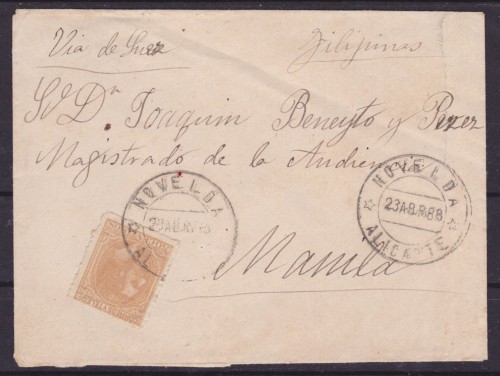 Via de Suez Filipinas
Sr. Dn. Joaquim Beneyto y Perez
Magistrado de la Audiencia
NOVELDA
23 ABR. 88
ALICANTE
NOVELDA
23 ABR. 88
Manila